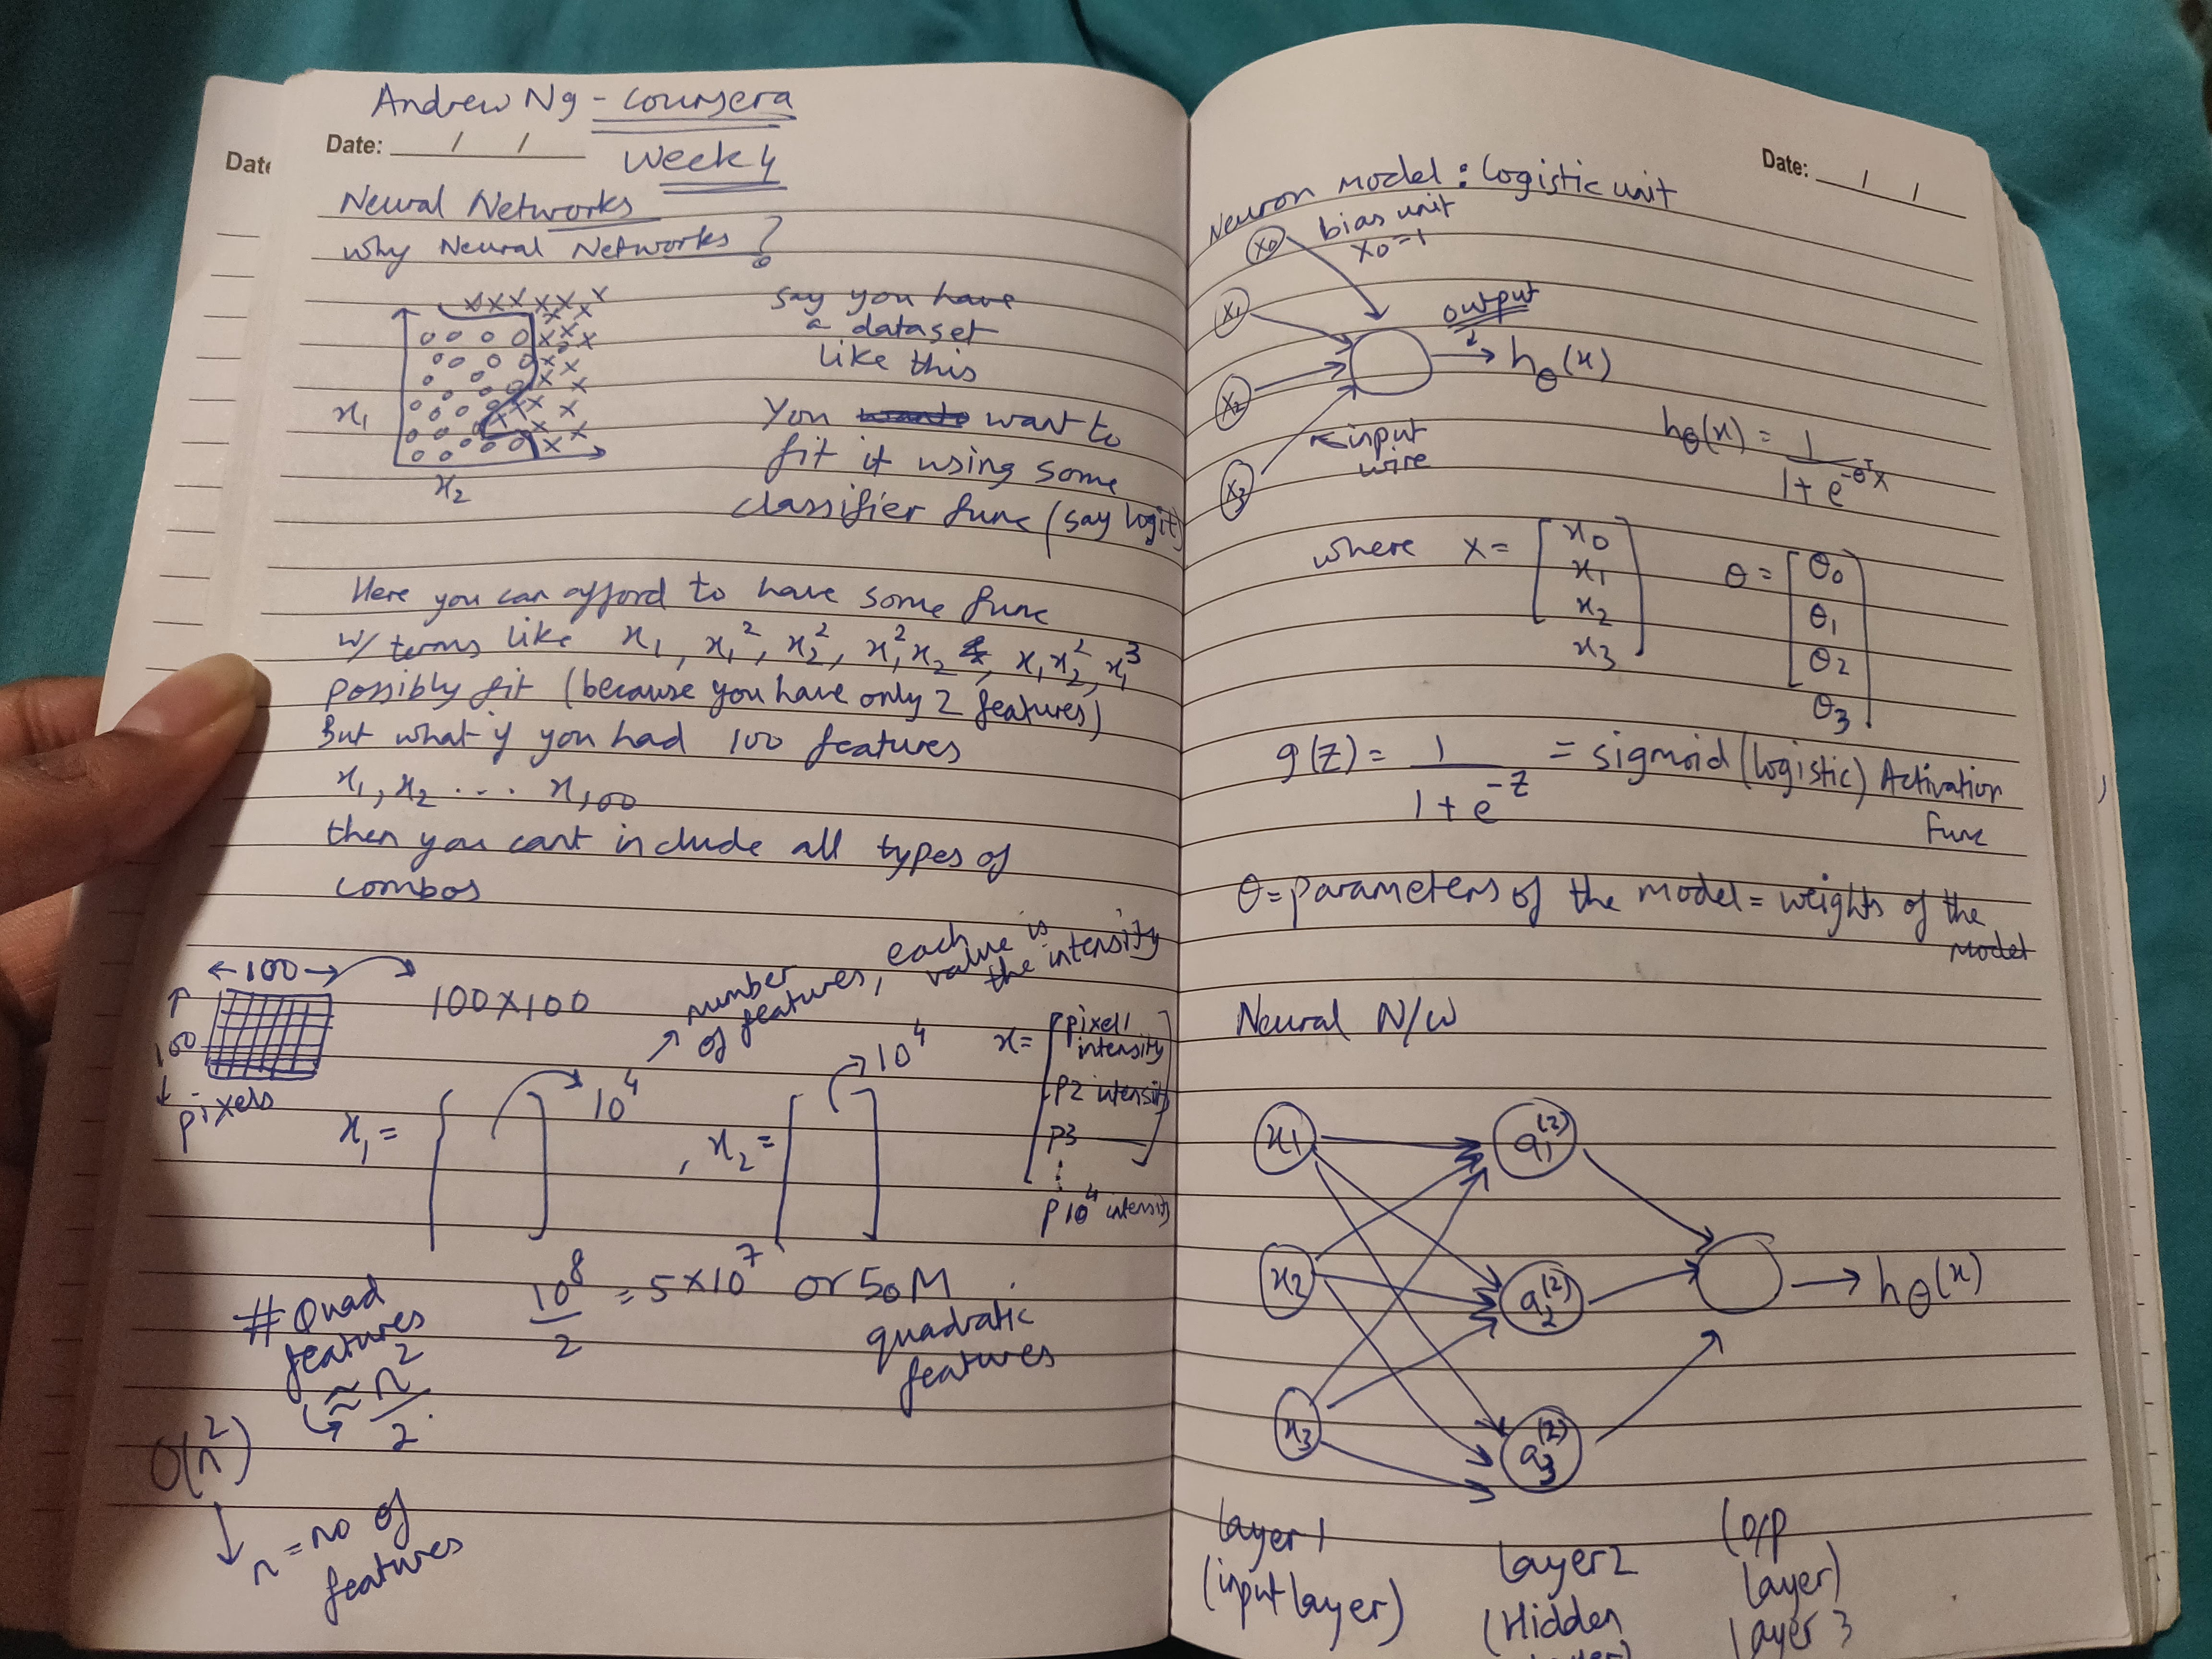 Andrew Ng - Coursera
Date: / /
Week 4
Neural Networks
Why Neural Networks?
x₁
x₂
say you have
a dataset
like this
You want to
fit it using some
classifier func (say logit)
Here you can afford to have some func
w/ terms like x₁, x₁², x₂², x₁²x₂, x₁x₂², x₁³
possibly fit (because you have only 2 features)
But what if you had 100 features
x₁, x₂ ... x₁₀₀
then you cant include all types of
combos
←100→
100
pixels
100X100
number
of features, each value is the intensity
x₁ = [ ] 10⁴
, x₂ = [ ] 10⁴
x = [pixel1
intensity
P2 intensity
P3
⋮
P10⁴ intensity
# Quad
features
≈ n²/2
10⁸/2 = 5×10⁷ or 50M
quadratic
features
O(n²)
n = no of
features
Date
Date: / /
Neuron Model: Logistic unit
bias unit
x0=1
x0
x₁
x₂
x₃
output
hθ(x)
input
wire
hθ(x) = 1/(1+e^-θᵀx)
where X = [x0 x1 x2 x3] θ = [θ0 θ1 θ2 θ3]
g(z) = 1/(1+e^-z) = sigmoid (logistic) Activation
Func
θ = parameters of the model = weights of the
model
Neural N/W
x1
x2
x3
a₁⁽²⁾
a₂⁽²⁾
a₃⁽²⁾
hθ(x)
layer 1
(input layer)
Layer 2
(Hidden
(O/P
layer)
layer 3